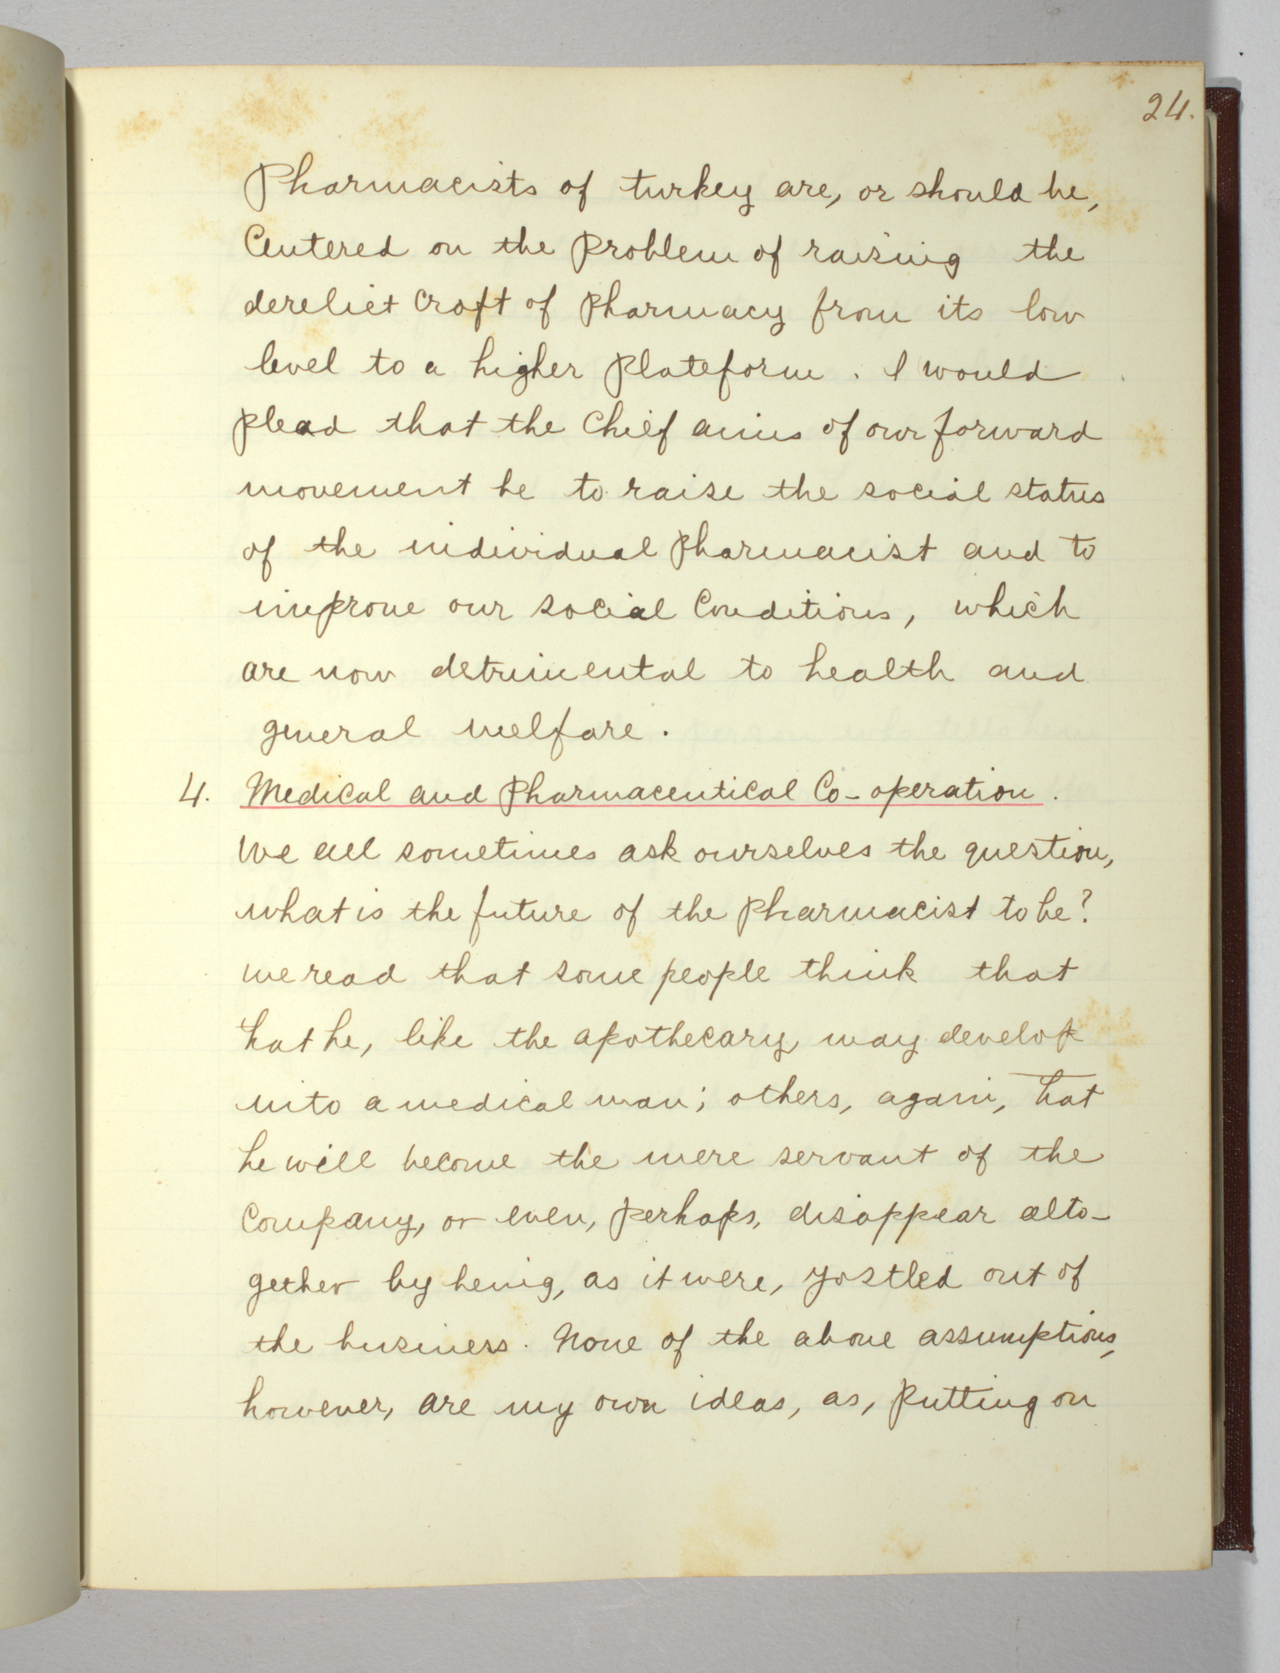 24.
Pharmacists of turkey are, or should be,
Centered on the Problem of raising the
derelict Craft of Pharmacy from its low
level to a higher Plateform. I would
plead that the Chief aims of our forward
movement be to raise the social status
of the individual Pharmacist and to
improve our social Conditions, which
are now detrimental to health and
general welfare.
4. Medical and Pharmaceutical Co-operation.
We all sometimes ask ourselves the question,
what is the future of the Pharmacist to be?
we read that some people think that
that he, like the apothecary, may develop
into a medical man; others, again, that
he will become the mere servant of the
Company, or even, perhaps, disappear alto-
gether by being, as it were, yostled out of
the business. None of the above assumptions,
however, are my own ideas, as, Putting on